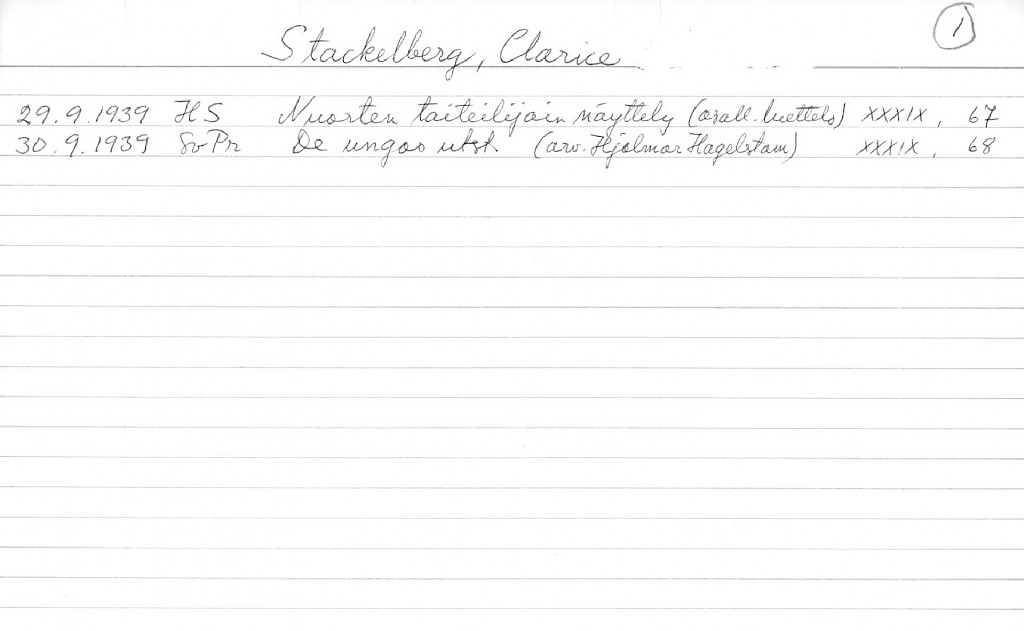 1
Stackelberg, Clarice
29.9.1939 HS Nuorten taiteilijain näyttely (osall. luettelo) XXXIX, 67
30.9.1939 SvPr De ungas utst. (arv. Hjalmar Hagelstam) XXXIX, 68